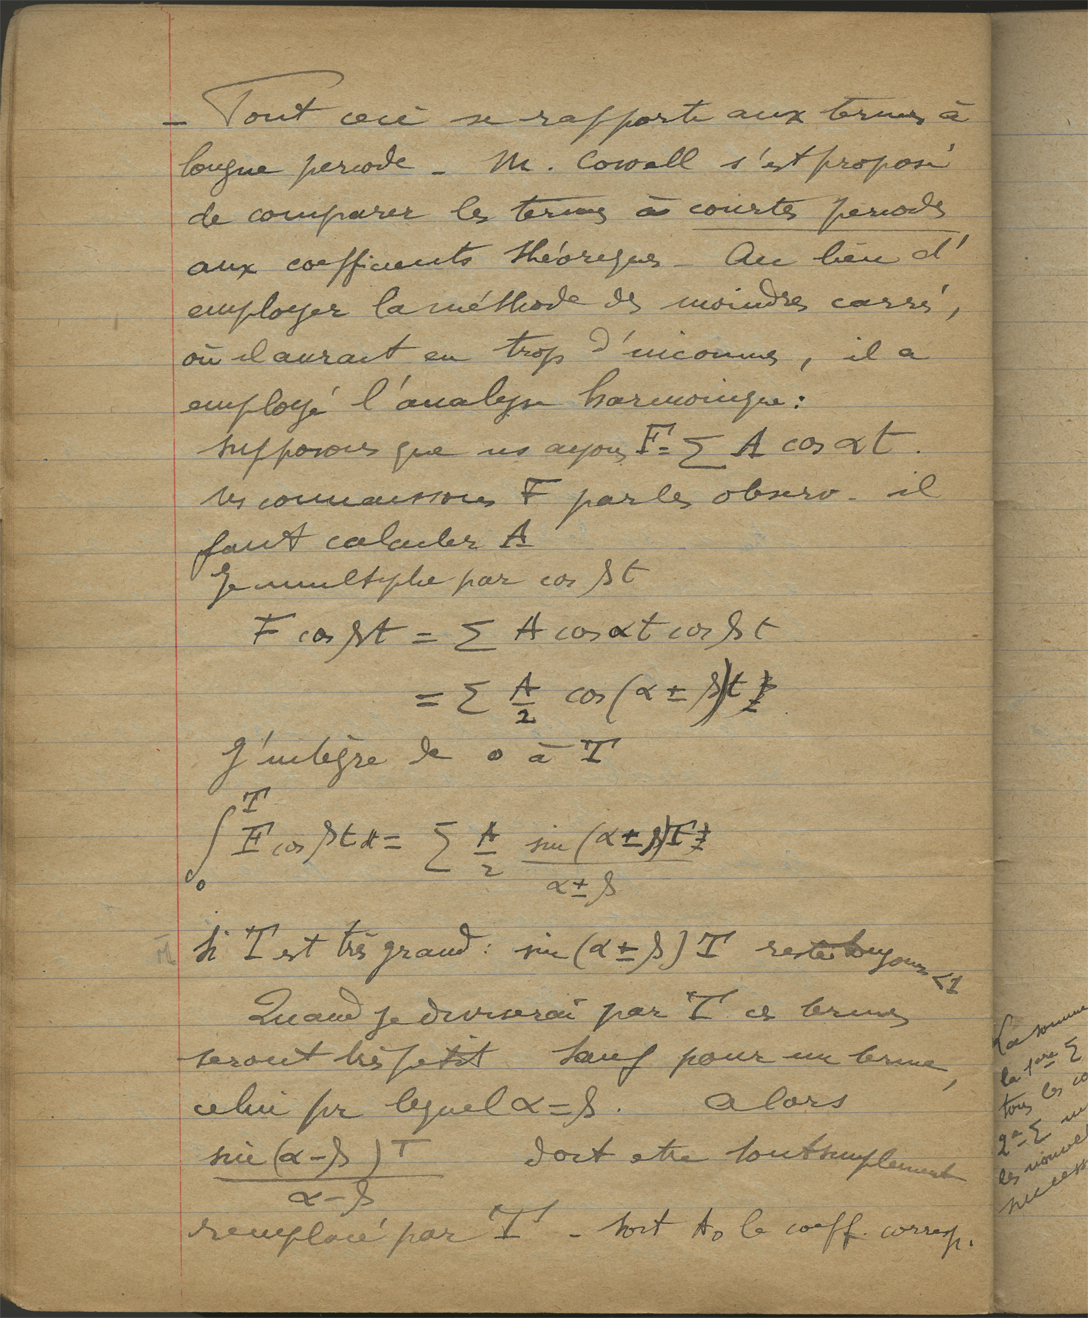 – Tout ceci se rapporte aux termes à
longue periode – M. Cowell s'est proposé
de comparer les termes à courtes periodes
aux coefficients théoriques – Au lieu d'
employer la méthode des moindres carrés,
où il aurait eu trop d'inconnues, il a
employé l'analyse harmonique :
supposons que ns ayons F = Σ A cos αt.
ns connaissons F par les observ. il
faut calculer A
Je multiplie par cos βt
F cos βt = Σ A cos αt cos βt
= Σ A/2 cos (α ± β)t
J'intègre de 0 à T
∫₀ᵀ F cos βt dt = Σ A/2 sin (α ± β)T / α ± β
Si T est très grand : sin (α ± β) T reste toujours <1
Quand je diviserai par T ces termes
seront très petit sauf pour un terme,
celui pr lequel α = β. Alors
sin (α – β) T / α – β doit etre tout simplement
remplacé par T – soit A₀ le coeff. corresp.
La somme
la 1ère Σ
tous les co
2e Σ
les nouvel
success